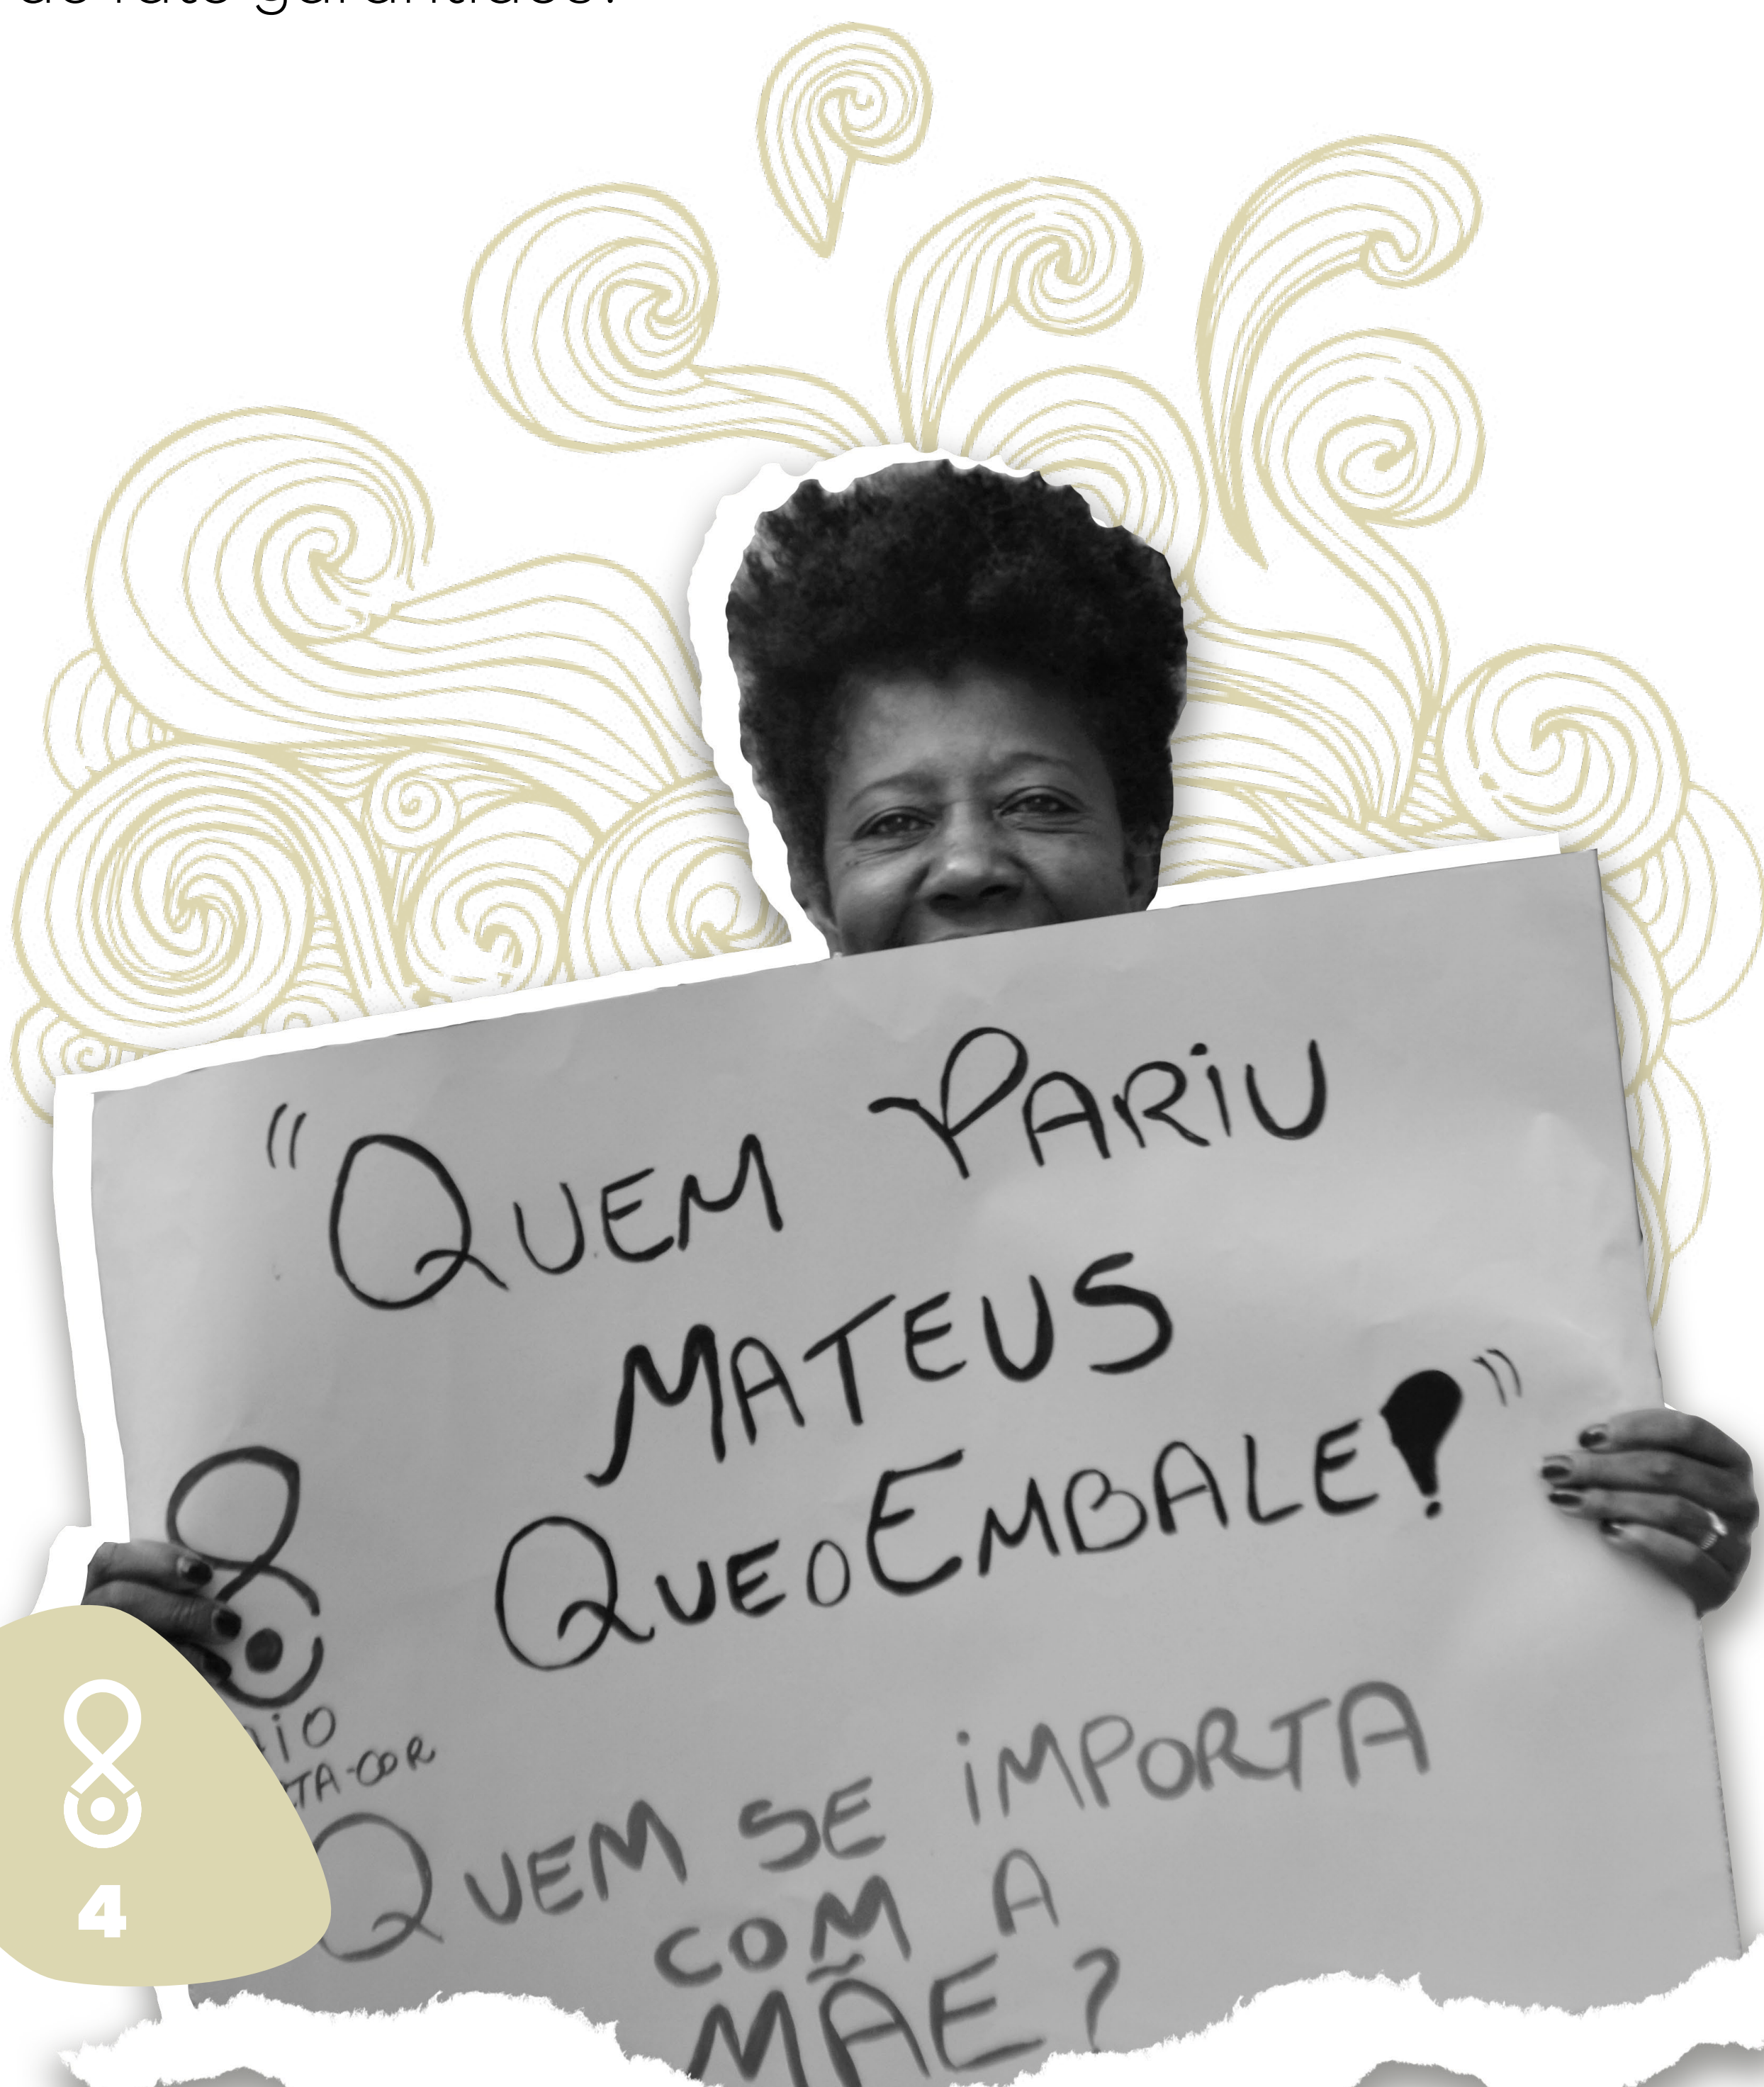 "QUEM PARIU
MATEUS
QUE O EMBALE!"
TA-COR
QUEM SE IMPORTA
COM A
MÃE?
4